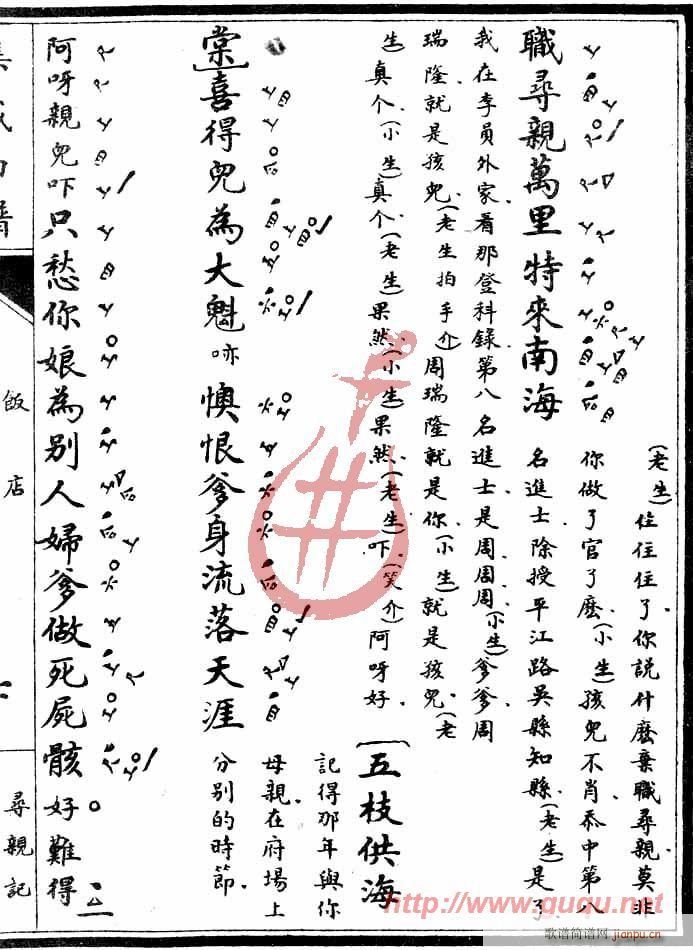 職尋親萬里特來南海
(老生)住住住了你說什麽棄職尋親莫非
你做了官了麽(小生)孩兒不肖忝中第八
名進士除授平江路吳縣知縣(老生)是了
我在李員外家看那登科錄第八名進士是周周周(小生)爹爹周
瑞隆就是孩兒(老生拍手介)周瑞隆就是你(小生)就是孩兒(老
生)真个(小生)真个(老生)果然(小生)果然(老生)吓(笑介)阿呀好
五枝供海
棠
記得那年與你
母親在府場上
分別的時節
喜得兒為大魁
懊恨爹身流落天涯
阿呀親兒吓只愁你娘為别人婦爹做死屍骸好難得
飯店
尋親記
http://www.guqu.net
歌谱简谱网
jianpu.cn